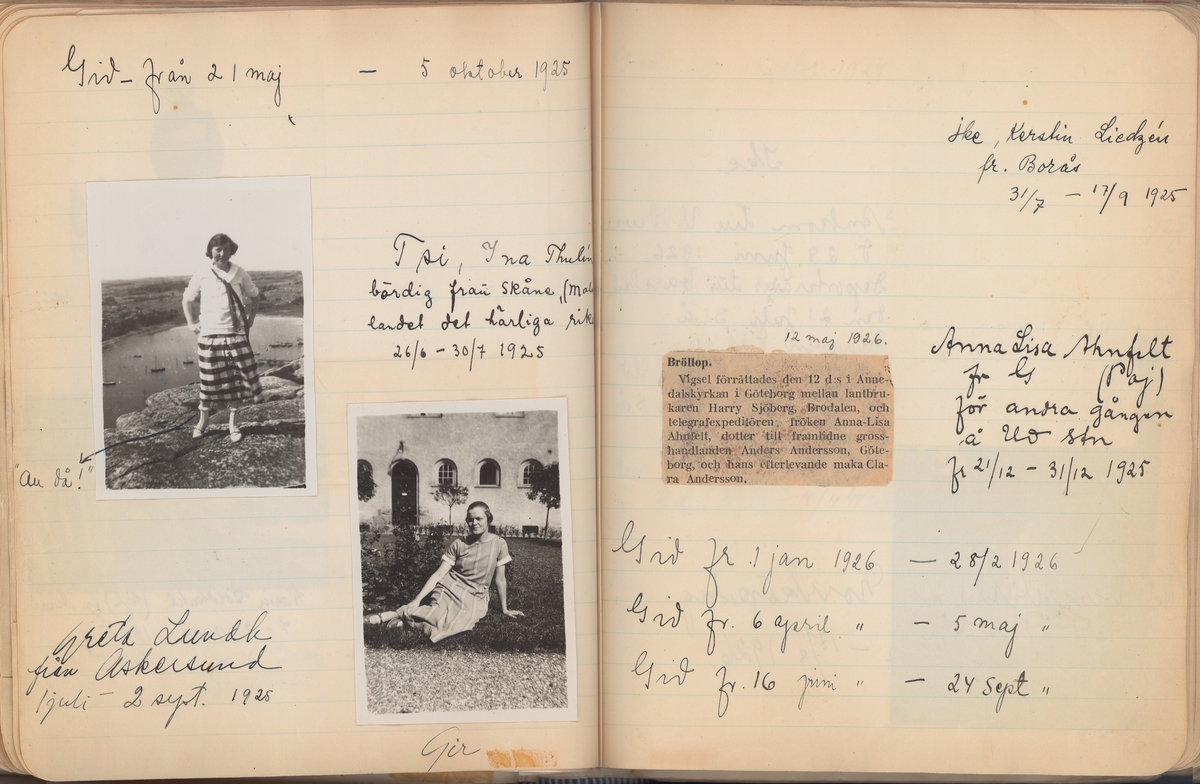 Gid - från 21 maj - 5 oktober 1925
Tsi, Ina Thulin
bördig från Skåne, (Mat
landet det härliga rik
26/6 - 30/7 1925
"An då!"
Greta Lundh
från Askersund
1 juli - 2 sept. 1925
Gir
Ike, Kerstin Liedzén
fr. Borås
31/7 - 17/9 1925
12 maj 1926.
Bröllop.
Vigsel förrättades den 12 d:s i Anne-
dalskyrkan i Göteborg mellan lantbru-
karen Harry Sjöberg, Brodalen, och
telegrafexpeditören, fröken Anna-Lisa
Ahnfelt, dotter till framlidne gross-
handlanden Anders Andersson, Göte-
borg, och hans efterlevande maka Cla-
ra Andersson.
Anna Lisa Ahnfelt
fr G (Paj)
för andra gången
å Ud stn
fr 21/12 - 31/12 1925
Gid fr. 1 jan 1926 - 28/2 1926
Gid fr. 6 april " - 5 maj "
Gid fr. 16 juni " - 24 sept "